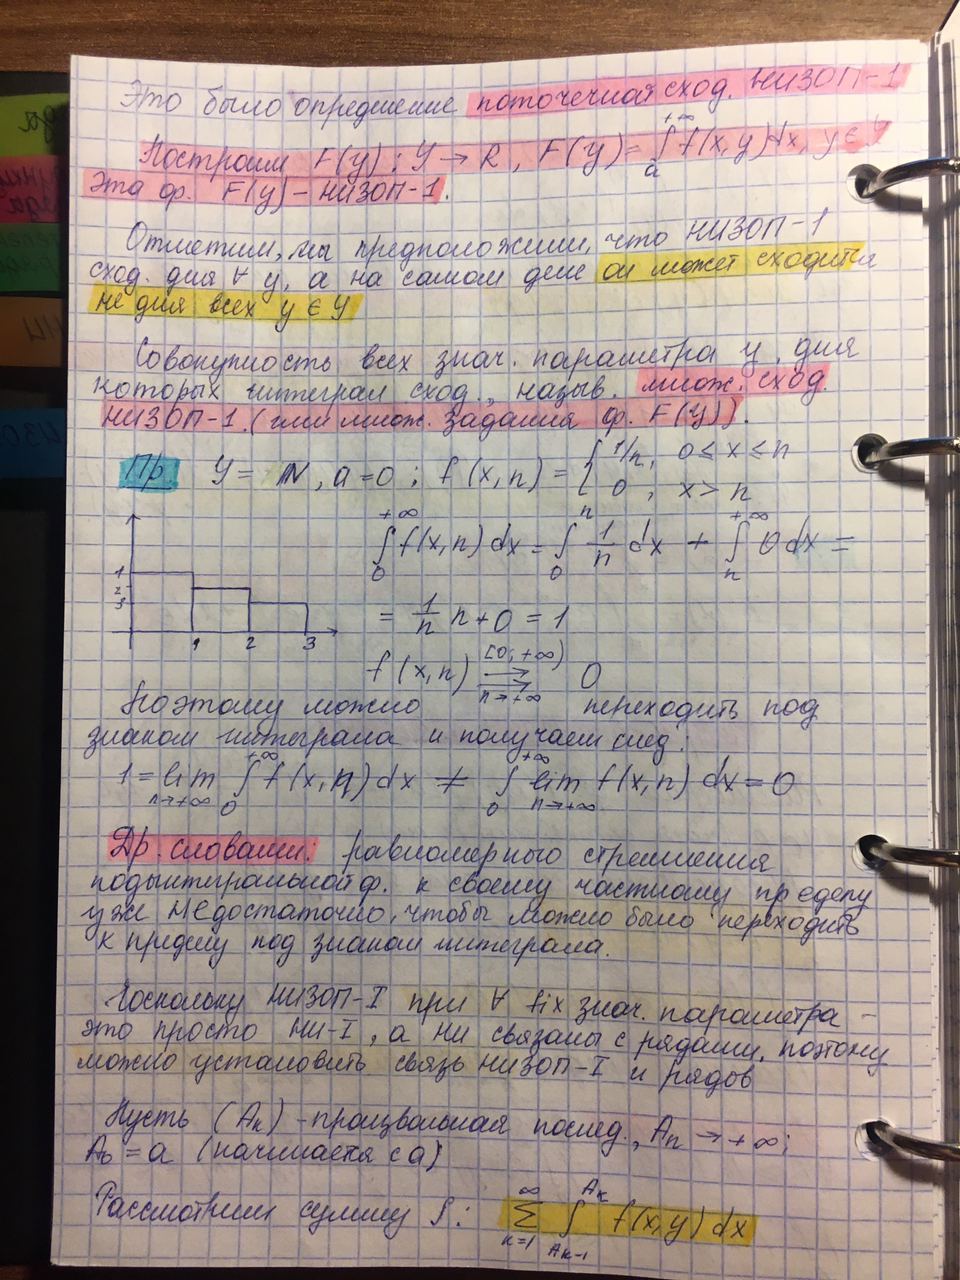 Это было определение поточечной сход. НИЗОП-1
Построим F(y): Y → R, F(y) = ∫ₐ^{+∞} f(x,y)dx, y ∈ Y
Эта ф. F(y) – НИЗОП-1.
Отметим, мы предположили, что НИЗОП-1
сход. для ∀ y, а на самом деле он может сходится
не для всех y ∈ Y
Совокупность всех знач. параметра y, для
которых интеграл сход., назыв. множ. сход.
НИЗОП-1. (или множ. задания ф. F(y)).
Пр. Y = N, a=0; f(x,n) = { 1/n, 0 ≤ x ≤ n
0, x > n
∫₀^{+∞} f(x,n) dx = ∫₀^n 1/n dx + ∫ₙ^{+∞} 0 dx =
1
2
3
1 2 3
= 1/n n + 0 = 1
f(x,n) ⇉ [0;+∞) n→+∞ 0
Поэтому можно переходить под
знаком интеграла и получаем след:
1 = lim n→+∞ ∫₀^{+∞} f(x,n) dx ≠ ∫₀^{+∞} lim n→+∞ f(x,n) dx = 0
Др. словами: равномерного стремления
подынтегральной ф. к своему частному пределу
уже недостаточно, чтобы можно было переходить
к пределу под знаком интеграла.
Поскольку НИЗОП-I при ∀ fix знач. параметра –
это просто НИ-I, а НИ связаны с рядами, поэтому
можно установить связь НИЗОП-I и рядов
Пусть (Aₖ) - произвольная послед., Aₙ → +∞;
A₀ = a (начинается с a)
Рассмотрим сумму ∫: ∑_{k=1}^{∞} ∫_{Aₖ₋₁}^{Aₖ} f(x,y) dx